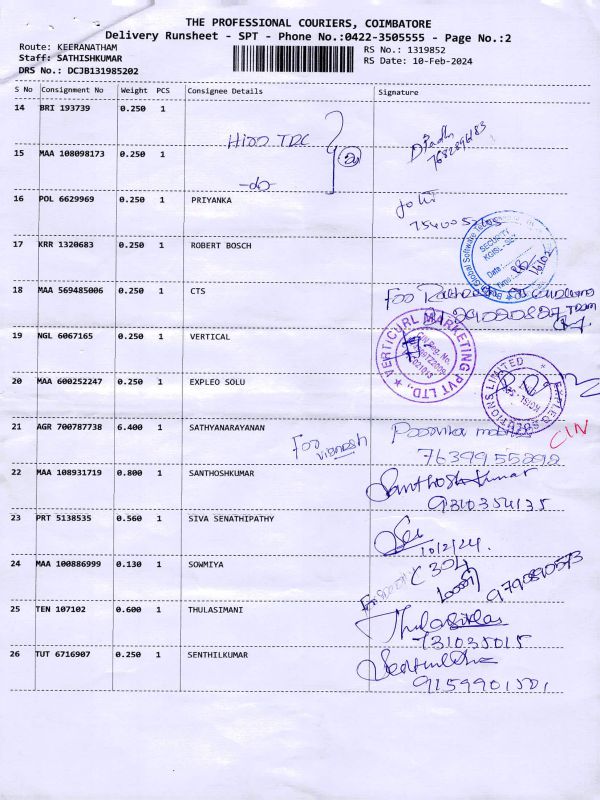 THE PROFESSIONAL COURIERS, COIMBATORE
Delivery Runsheet - SPT - Phone No.:0422-3505555 - Page No.:2
Route: KEERANATHAM
RS No.: 1319852
Staff: SATHISHKUMAR
RS Date: 10-Feb-2024
DRS No.: DCJB131985202
S No Consignment No Weight PCS Consignee Details Signature
14 BRI 193739 0.250 1
15 MAA 108098173 0.250 1
-do-
16 POL 6629969 0.250 1 PRIYANKA
17 KRR 1320683 0.250 1 ROBERT BOSCH
SECURITY
18 MAA 569485006 0.250 1 CTS
19 NGL 6067165 0.250 1 VERTICAL
VERTICURL MARKETING PVT LTD.,
20 MAA 600252247 0.250 1 EXPLEO SOLU
EXPLEO SOLUTIONS LIMITED
21 AGR 700787738 6.400 1 SATHYANARAYANAN
CIN
22 MAA 108931719 0.800 1 SANTHOSHKUMAR Santhosh Kumar
9310354135
23 PRT 5138535 0.560 1 SIVA SENATHIPATHY
10/2/24.
24 MAA 100886999 0.130 1 SOWMIYA C 304
25 TEN 107102 0.600 1 THULASIMANI
731035015
26 TUT 6716907 0.250 1 SENTHILKUMAR